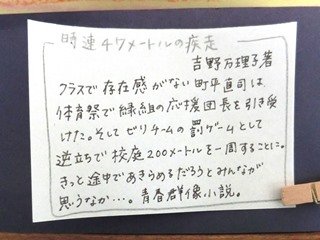 時速47メートルの疾走
吉野万理子著
クラスで存在感がない町平直司は、
体育祭で緑組の応援団長を引き受
けた。そしてビリチームの罰ゲームとして
逆立ちで校庭200メートルを一周することに。
きっと途中であきらめるだろうとみんなが
思うなか…。青春群像小説。